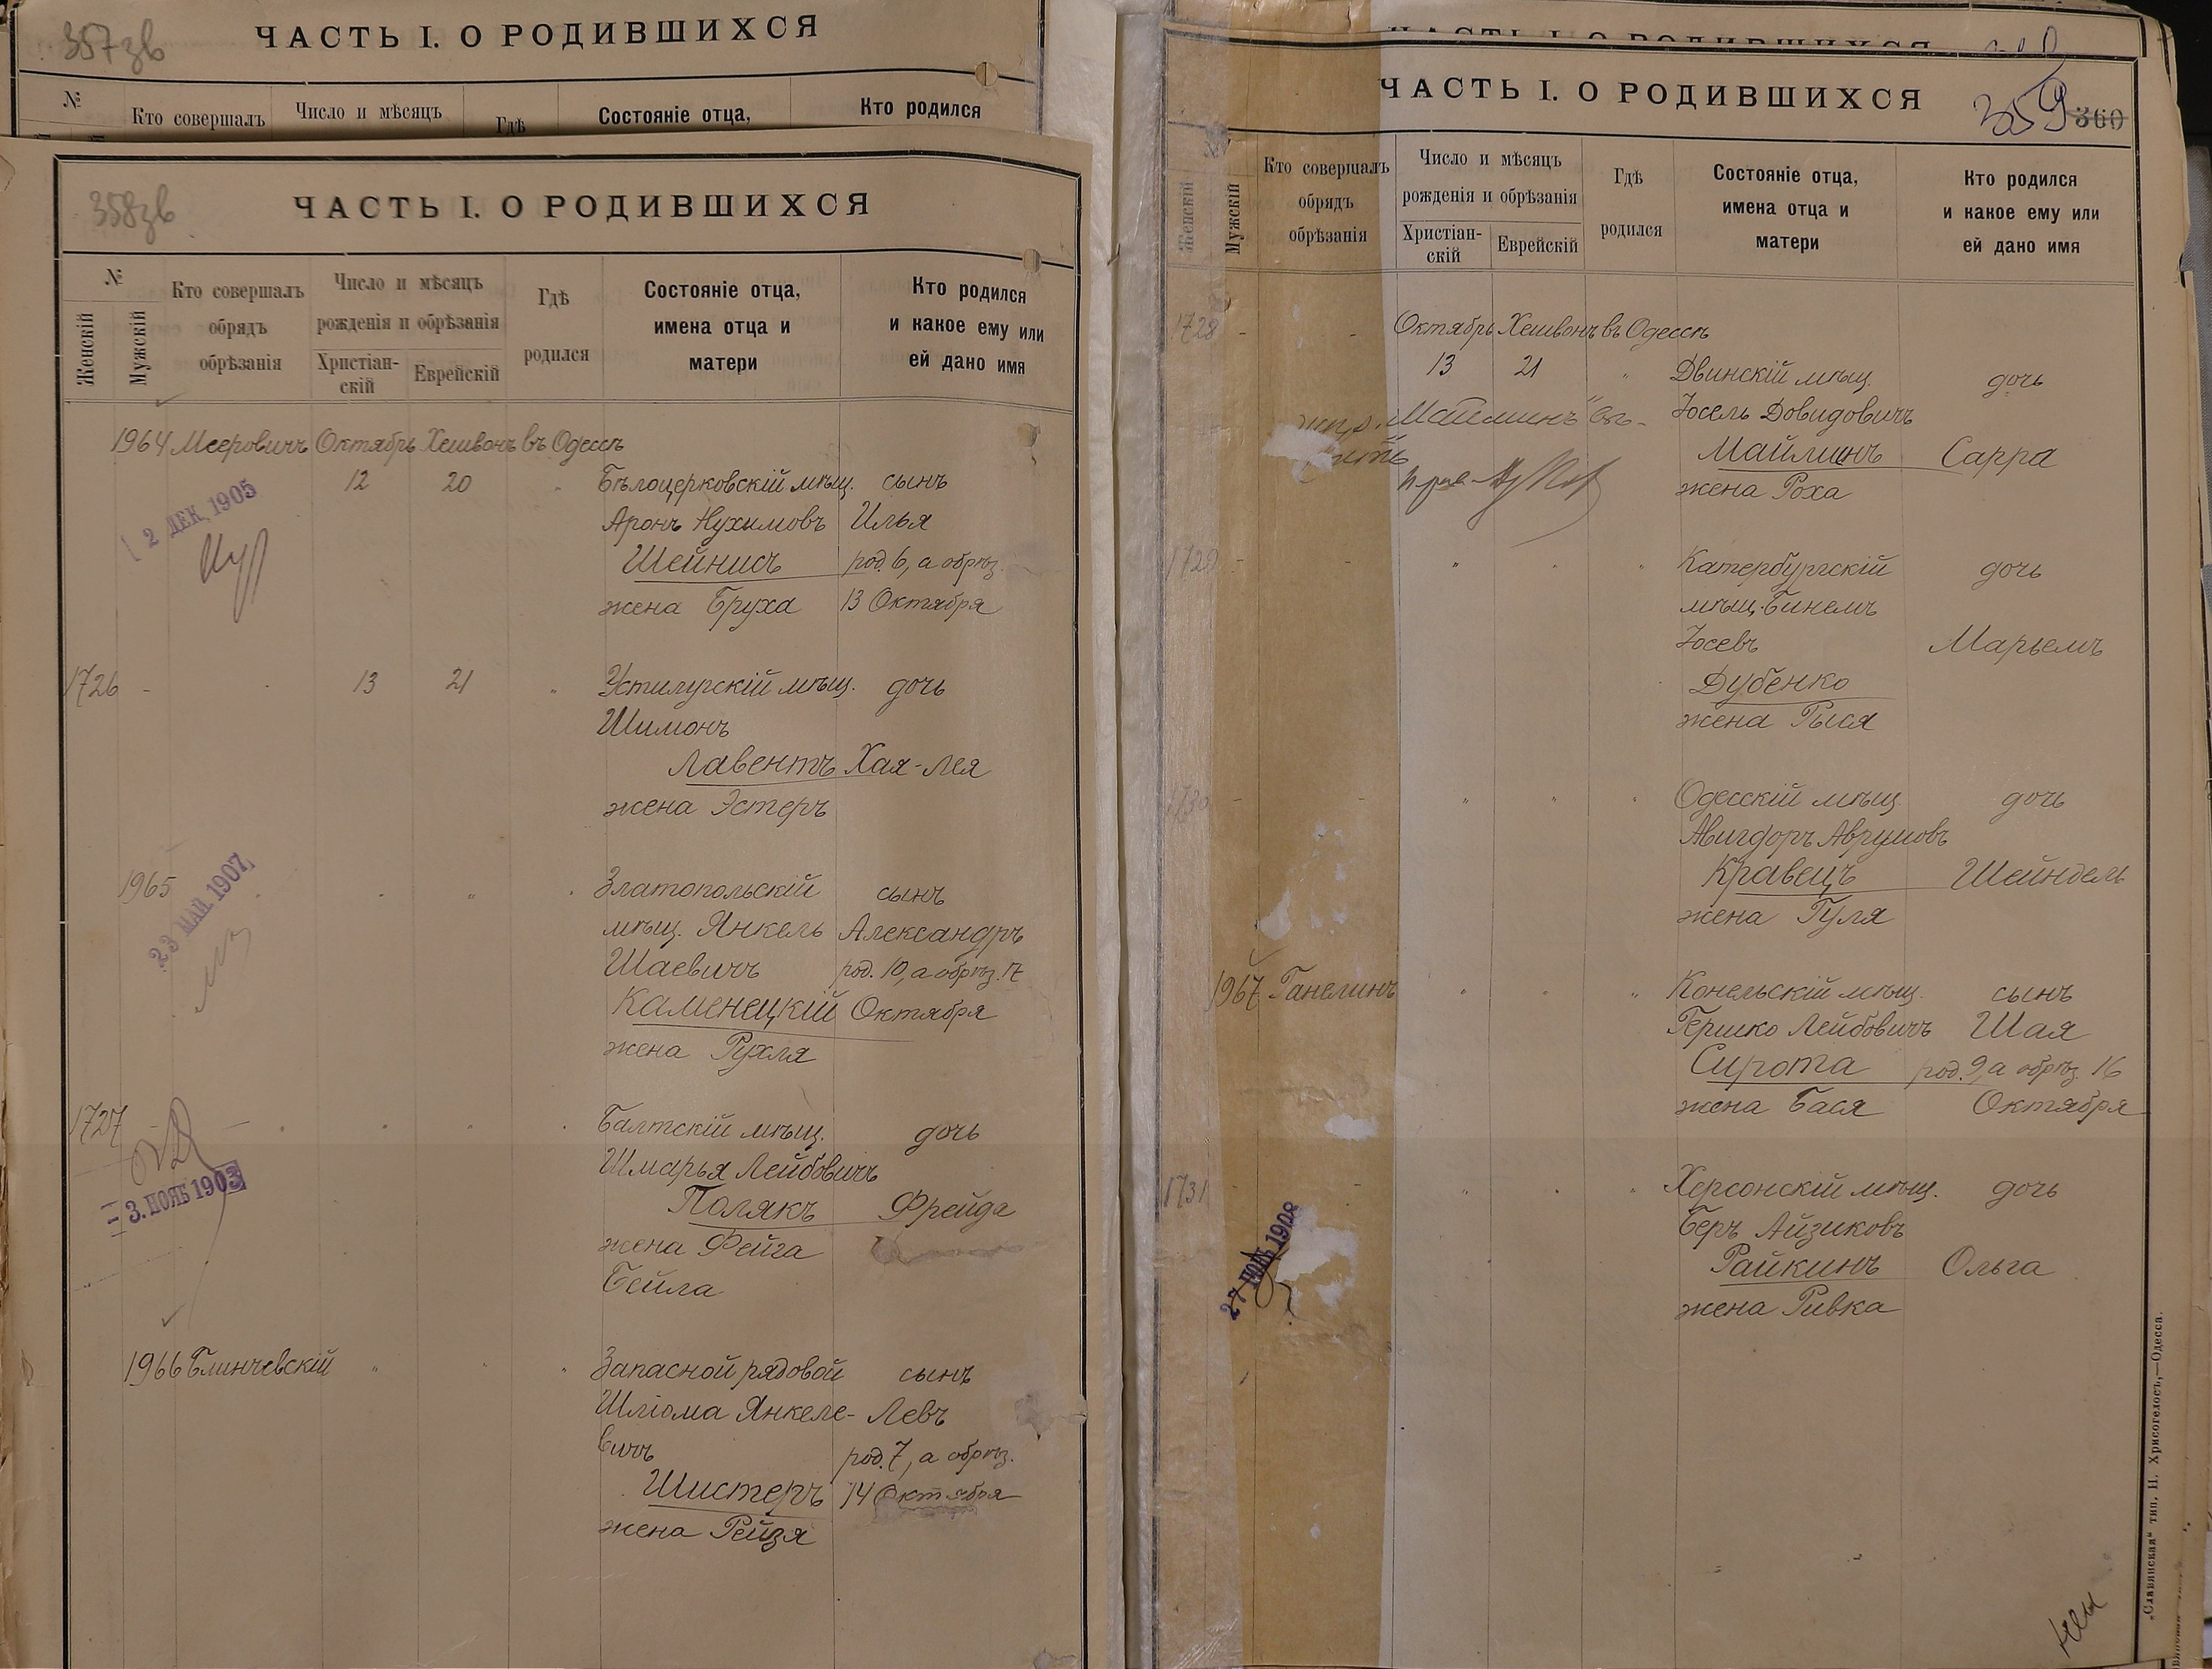 357зв
ЧАСТЬ I. О РОДИВШИХСЯ
№
Кто совершалъ
Число и мѣсяцъ
Гдѣ
Состояніе отца,
Кто родился
358зв
ЧАСТЬ I. О РОДИВШИХСЯ
№
Женскій
Мужскій
Кто совершалъ
обрядъ
обрѣзанія
Число и мѣсяцъ
рожденія и обрѣзанія
Христіан-
скій
Еврейскій
Гдѣ
родился
Состояніе отца,
имена отца и
матери
Кто родился
и какое ему или
ей дано имя
1964 Мееровичъ Октябрь Хешвонъ въ Одессѣ
12 20 " Бѣлоцерковскій мѣщ. сынъ
2 ДЕК. 1905
Аронъ Нухимовъ Илья
Шейнисъ род. 6, а обрѣз.
жена Бруха 13 Октября
1726 - - 13 21 " Устилугскій мѣщ. дочь
Шимонъ
Лавентъ Хая-Лея
жена Эстеръ
1965 " " " Златопольскій сынъ
23 МАЙ 1907
мѣщ. Янкель Александръ
Шаевичъ род. 10, а обрѣз. 17
Каменецкій Октября
жена Рухля
1727 - - " " " Балтскій мѣщ. дочь
3. НОЯБ 1903
Шмарья Лейбовичъ
Полякъ Фрейда
жена Фейга
Бейла
1966 Блинчевскій " " " Запасной рядовой сынъ
Шліома Янкеле- Левъ
вичъ род. 7, а обрѣз.
Шистеръ 14 Октября
жена Рейзя
ЧАСТЬ I. О РОДИВШИХСЯ
ЧАСТЬ I. О РОДИВШИХСЯ
359 360
Женскій
Мужскій
Кто совершалъ
обрядъ
обрѣзанія
Число и мѣсяцъ
рожденія и обрѣзанія
Христіан-
скій
Еврейскій
Гдѣ
родился
Состояніе отца,
имена отца и
матери
Кто родился
и какое ему или
ей дано имя
1728 - - Октябрь Хешвонъ въ Одессѣ
13 21 " Двинскій мѣщ. дочь
Майлинъ
Іосель Довидовичъ
Майлинъ Сарра
жена Роха
1729 - - " " " Катербургскій дочь
мѣщ. Бинемъ
Іосевъ Марьемъ
Дубенко
жена Рыся
1730 - - " " " Одесскій мѣщ. дочь
Авигдоръ Аврумовъ
Кравецъ Шейндель
жена Гуля
1967 Ганелинъ " " " Конельскій мѣщ. сынъ
Гершко Лейбовичъ Шая
Сирота род. 9, а обрѣз. 16
жена Бася Октября
1731 - - " " " Херсонскій мѣщ. дочь
Беръ Айзиковъ
Райкинъ Ольга
жена Ривка
„Славянская“ тип. Н. Хрисогелосъ,—Одесса.